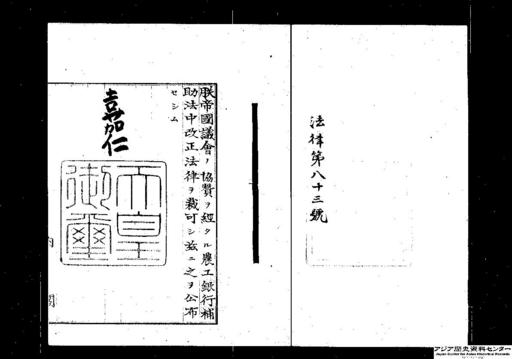 法律第八十三號
朕帝國議會ノ協贊ヲ經タル農工銀行補
助法中改正法律ヲ裁可シ茲ニ之ヲ公布
セシム
嘉仁
天皇
御璽
内
閣
アジア歴史資料センター
Japan Center for Asian Historical Records